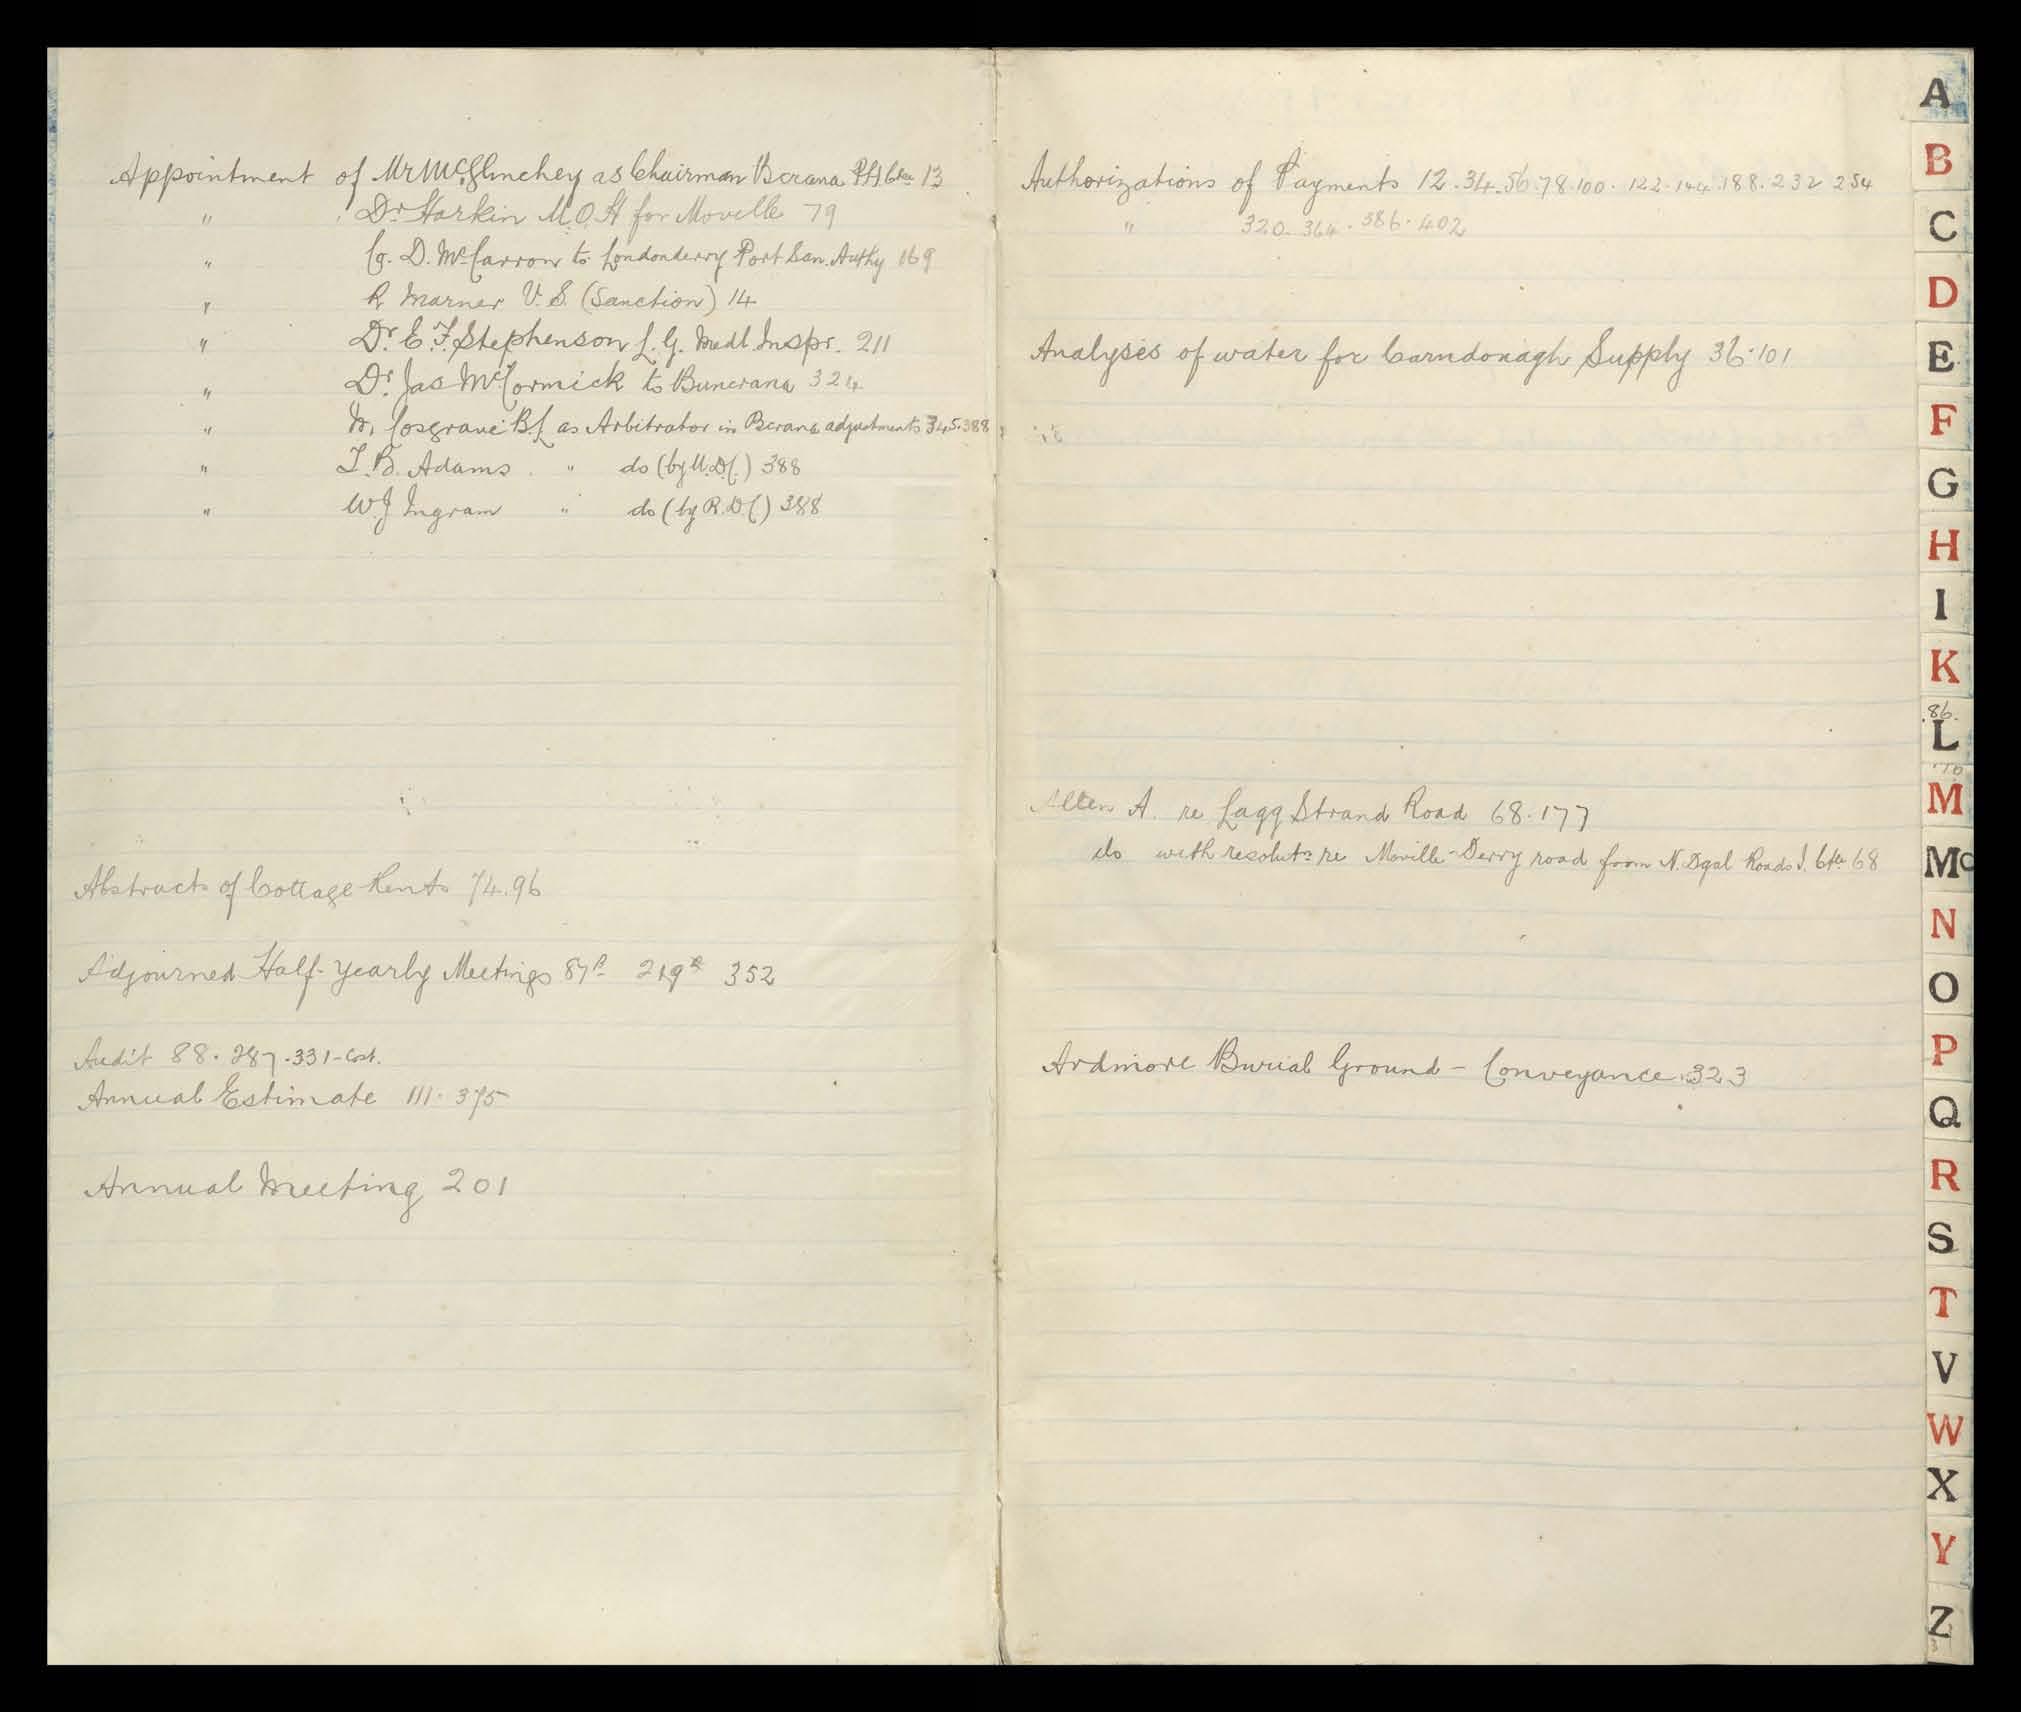 Appointment of Mr McGlinchey as Chairman Bcrana P.H. Ctee 13
" Dr Harkin M.O.H for Moville 79
" Co. D. McCarron to Londonderry Port San. Authy 169
" R Marner V.S. (Sanction) 14
" Dr. E. F. Stephenson L.G. Medl. Inspr. 211
" Dr. Jas McCormick to Buncrana 324
" W. Cosgrave B.L. as Arbitrator in Bcrana adjustments 345.388
" T. B. Adams " do (by U.D.C.) 388
" W.J Ingram " do (by R.D.C) 388
Abstracts of Cottage Rents 74.96
Adjourned Half-Yearly Meetings 87a 219a 352
Audit 88. 287.331-Cost.
Annual Estimate 111. 375
Annual Meeting 201
Authorizations of Payments 12.34.56.78.100.122.144.188.232 254
" 320. 364. 386. 402
Analyses of water for Carndonagh Supply 36.101
Allen A. re Lagg Strand Road 68.177
do with resolutn re Moville-Derry road from N.Dgal Roads I. Ctee 68
Ardmore Burial Ground - Conveyance.323
A
B
C
D
E
F
G
H
I
K
.86.
L
M
Mc
N
O
P
Q
R
S
T
V
W
X
Y
Z